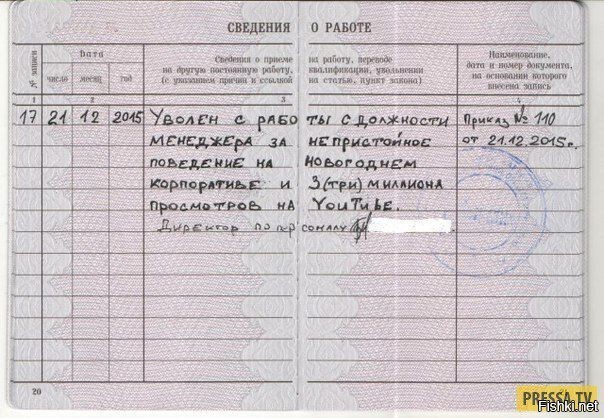 СВЕДЕНИЯ О РАБОТЕ
№ записи
Дата
число
месяц
год
Сведения о приеме на работу, переводе
на другую постоянную работу, квалификации, увольнении
(с указанием причин и ссылкой на статью, пункт закона)
Наименование,
дата и номер документа,
на основании которого
внесена запись
1 2 3 4
17 21 12 2015 Уволен с работы с должности Приказ № 110
менеджера за непристойное от 21.12.2015г.
поведение на новогоднем
корпоративе и 3(три) миллиона
просмотров на YouTube.
Директор по персоналу
20
PRESSA.TV
Fishki.net